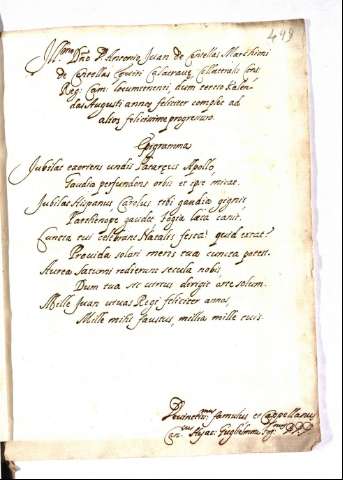 449
Ill.mo Dño D. Antonio Juan de Centellas Marchioni
de Centellas Equiti Calatravæ Collaterali Cons.
Reg: Cam: locumtenenti, dum tertio Kalen-
das Augusti annos feliciter complet ad
altos felicissime progressuro.
Epigramma
Jubilat exoriens undis Patareus Apollo,
Gaudia perfundens orbis et ipse micat.
Jubilat Hispanus, Carolus tibi gaudia gignit,
Parthenope gaudet Regia læta canit.
Cuncta tui celebrant Natalis festa: quid extat?
Provida solari mens tua cuncta potest.
Aurea Saturni redierunt secula nobis
Dum tua sic virtus dirigit arte solum.
Mille Juan vivas Regi feliciter annos,
Mille mihi faustus, millia mille tuis.
Devinctiss.mus famulus et Cappellanus
Can.cus Hyac: Guglielmini
D D D